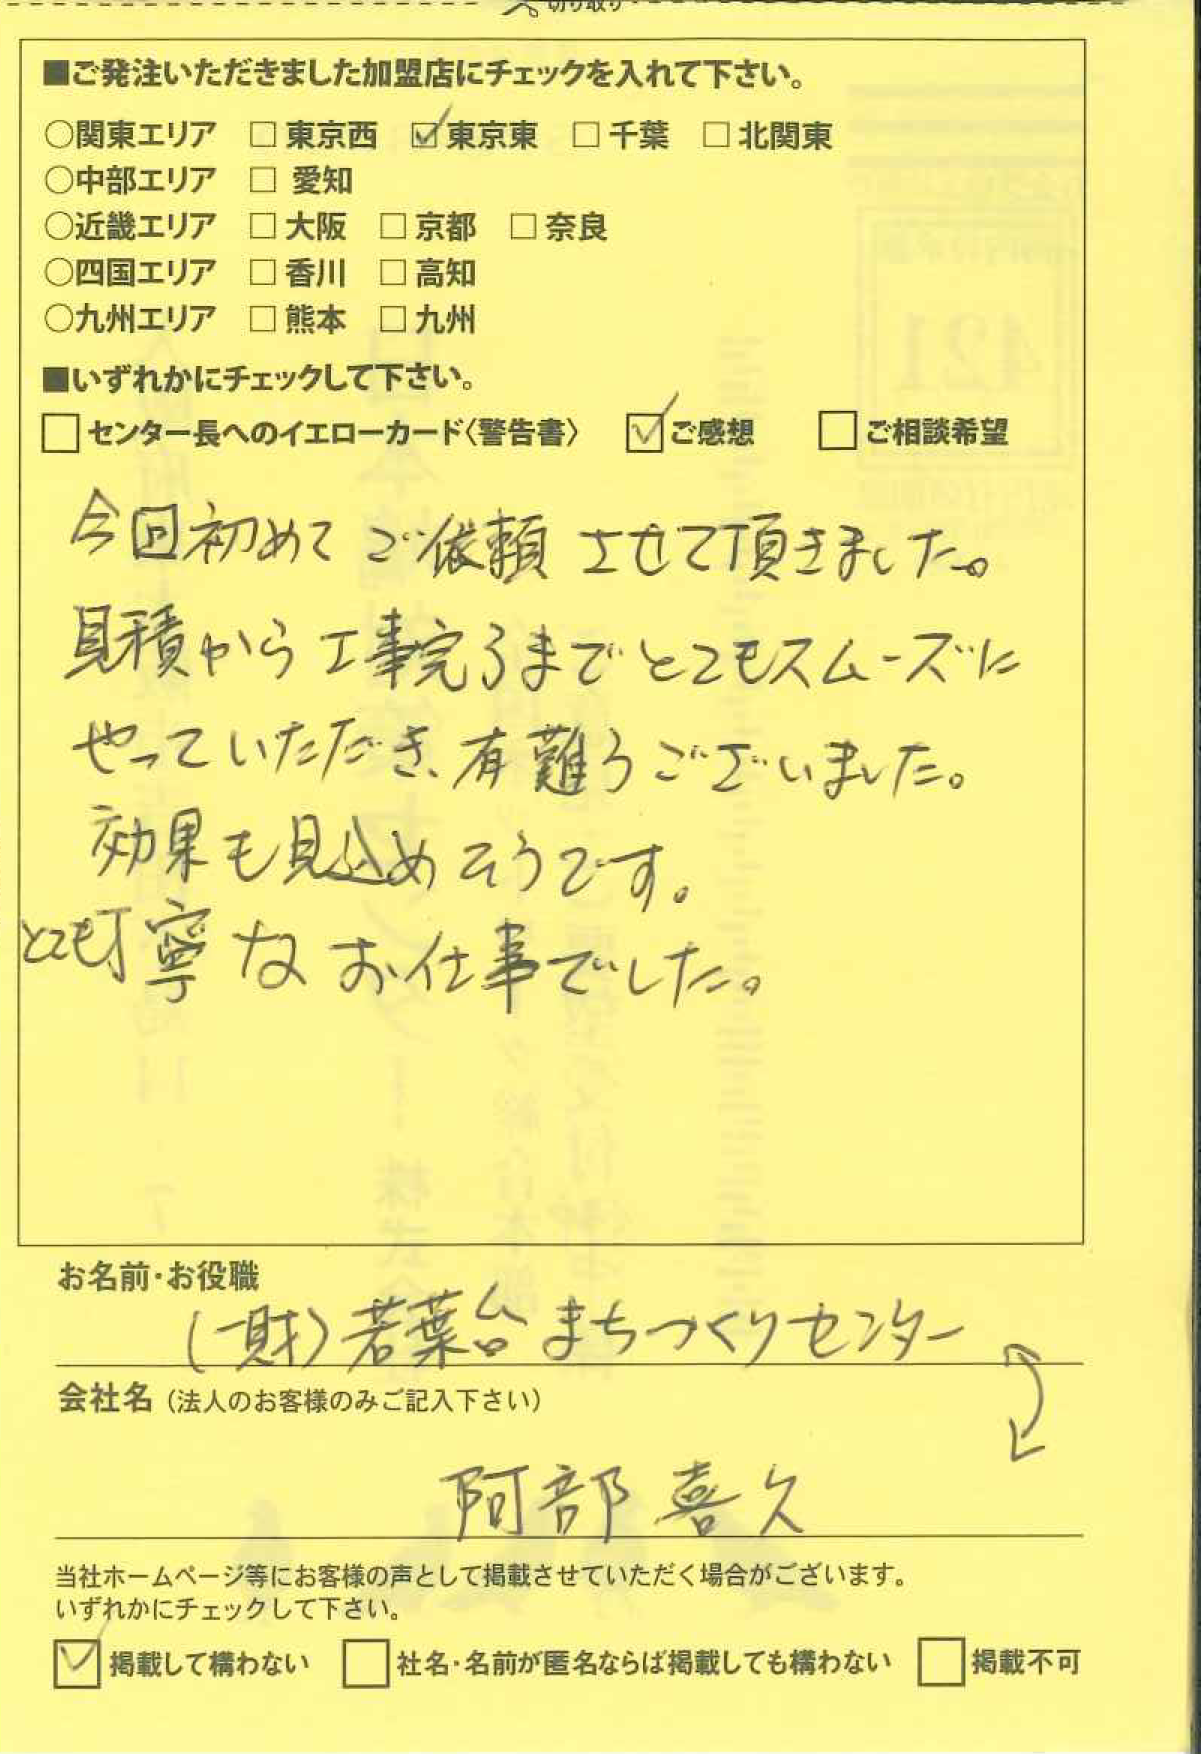 切り取り
■ご発注いただきました加盟店にチェックを入れて下さい。
○関東エリア □ 東京西 ☑ 東京東 □ 千葉 □ 北関東
○中部エリア □ 愛知
○近畿エリア □ 大阪 □ 京都 □ 奈良
○四国エリア □ 香川 □ 高知
○九州エリア □ 熊本 □ 九州
■いずれかにチェックして下さい。
□ センター長へのイエローカード〈警告書〉 ☑ ご感想 □ ご相談希望
今回初めてご依頼させて頂きました。
見積から工事完了までとてもスムーズに
やっていただき、有難うございました。
効果も見込めそうです。
とても丁寧なお仕事でした。
お名前・お役職
(一財)若葉台まちづくりセンター
会社名（法人のお客様のみご記入下さい）
阿部喜久
当社ホームページ等にお客様の声として掲載させていただく場合がございます。
いずれかにチェックして下さい。
☑ 掲載して構わない □ 社名・名前が匿名ならば掲載しても構わない □ 掲載不可